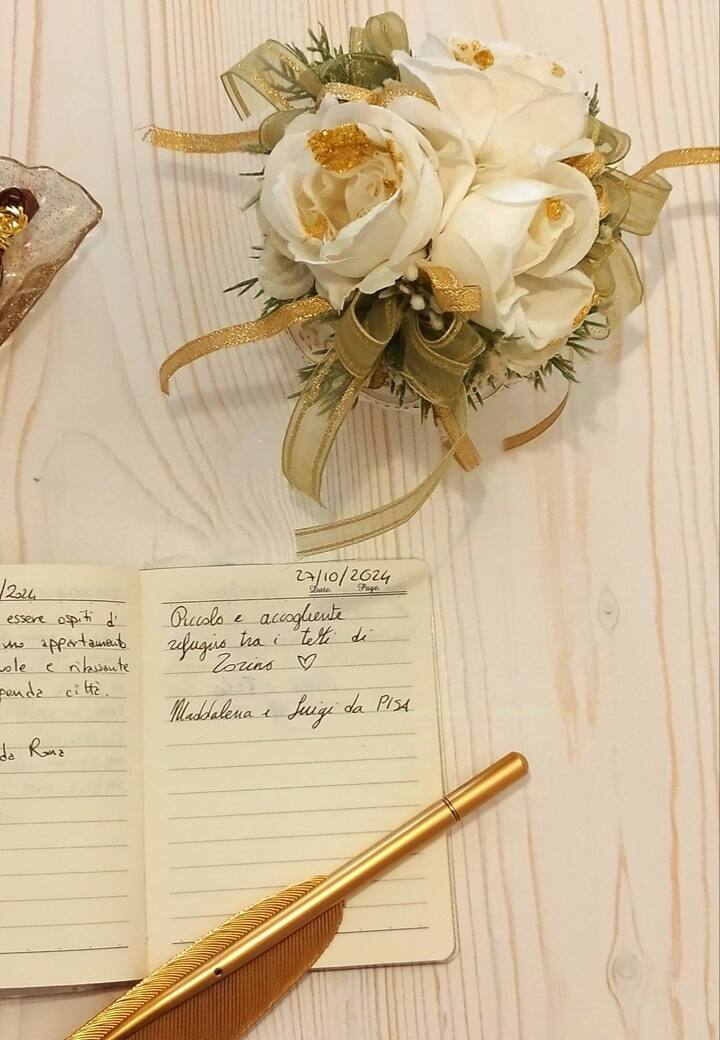 /2024
essere ospiti d'
mo appartamento
vole e rilassante
penda città.
da Roma
27/10/2024
Date. Page.
Piccolo e accogliente
rifugio tra i tetti di
Torino ♡
Maddalena e Luigi da PISA